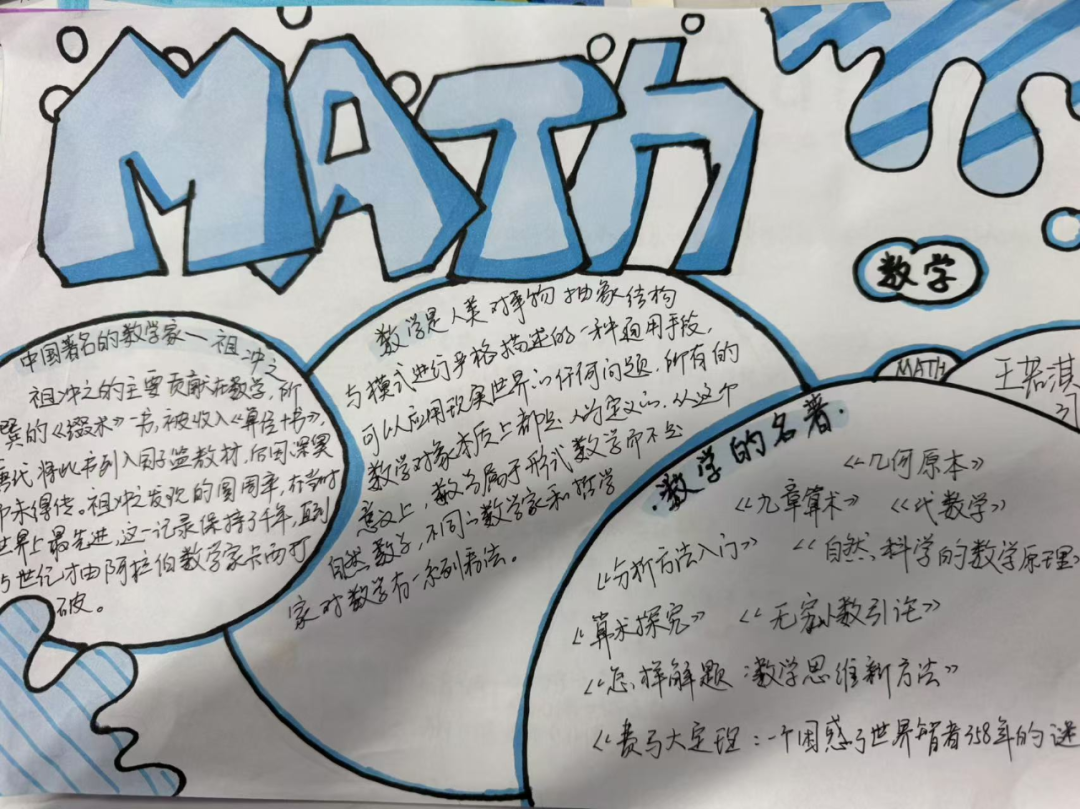 MATH
数学
中国著名的数学家——祖冲之
祖冲之的主要贡献在数学,所
撰的《缀术》一书,被收入《算经十书》,
唐代将此书列入国子监教材,后因深奥
而未得传。祖冲之发现的圆周率,在当时
世界上最先进,这一记录保持了千年,直到
15世纪才由阿拉伯数学家卡西打
破。
数学是人类对事物抽象结构
与模式进行严格描述的一种通用手段,
可以应用现实世界的任何问题,所有的
数学对象本质上都是人为定义的,从这个
意义上,数学属于形式数学而不是
自然数学,不同的数学家和哲学
家对数学有一系列看法。
MATH
王若淇
数学的名著
《几何原本》
《九章算术》 《代数学》
《分析方法入门》 《自然科学的数学原理》
《算术探究》 《无穷小数引论》
《怎样解题:数学思维新方法》
《费马大定理:一个困惑了世界智者358年的谜